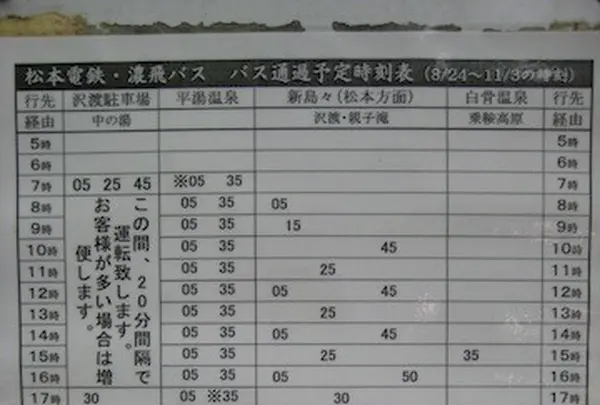 松本電鉄・濃飛バス バス通過予定時刻表（8/24～11/3の時刻）
行先 沢渡駐車場 平湯温泉 新島々（松本方面） 白骨温泉 行先
経由 中の湯 沢渡・親子滝 乗鞍高原 経由
5時 5時
6時 6時
7時 05 25 45 ※05 35 7時
8時 05 35 05 8時
9時 05 35 15 9時
10時 05 35 45 10時
11時 05 35 25 11時
12時 05 35 05 45 12時
13時 05 35 25 13時
14時 05 35 05 45 14時
15時 05 35 25 35 15時
16時 05 35 05 50 16時
17時 30 05 ※35 30 17時
この間、20分間隔で
運転致します。
お客様が多い場合は増
便します。